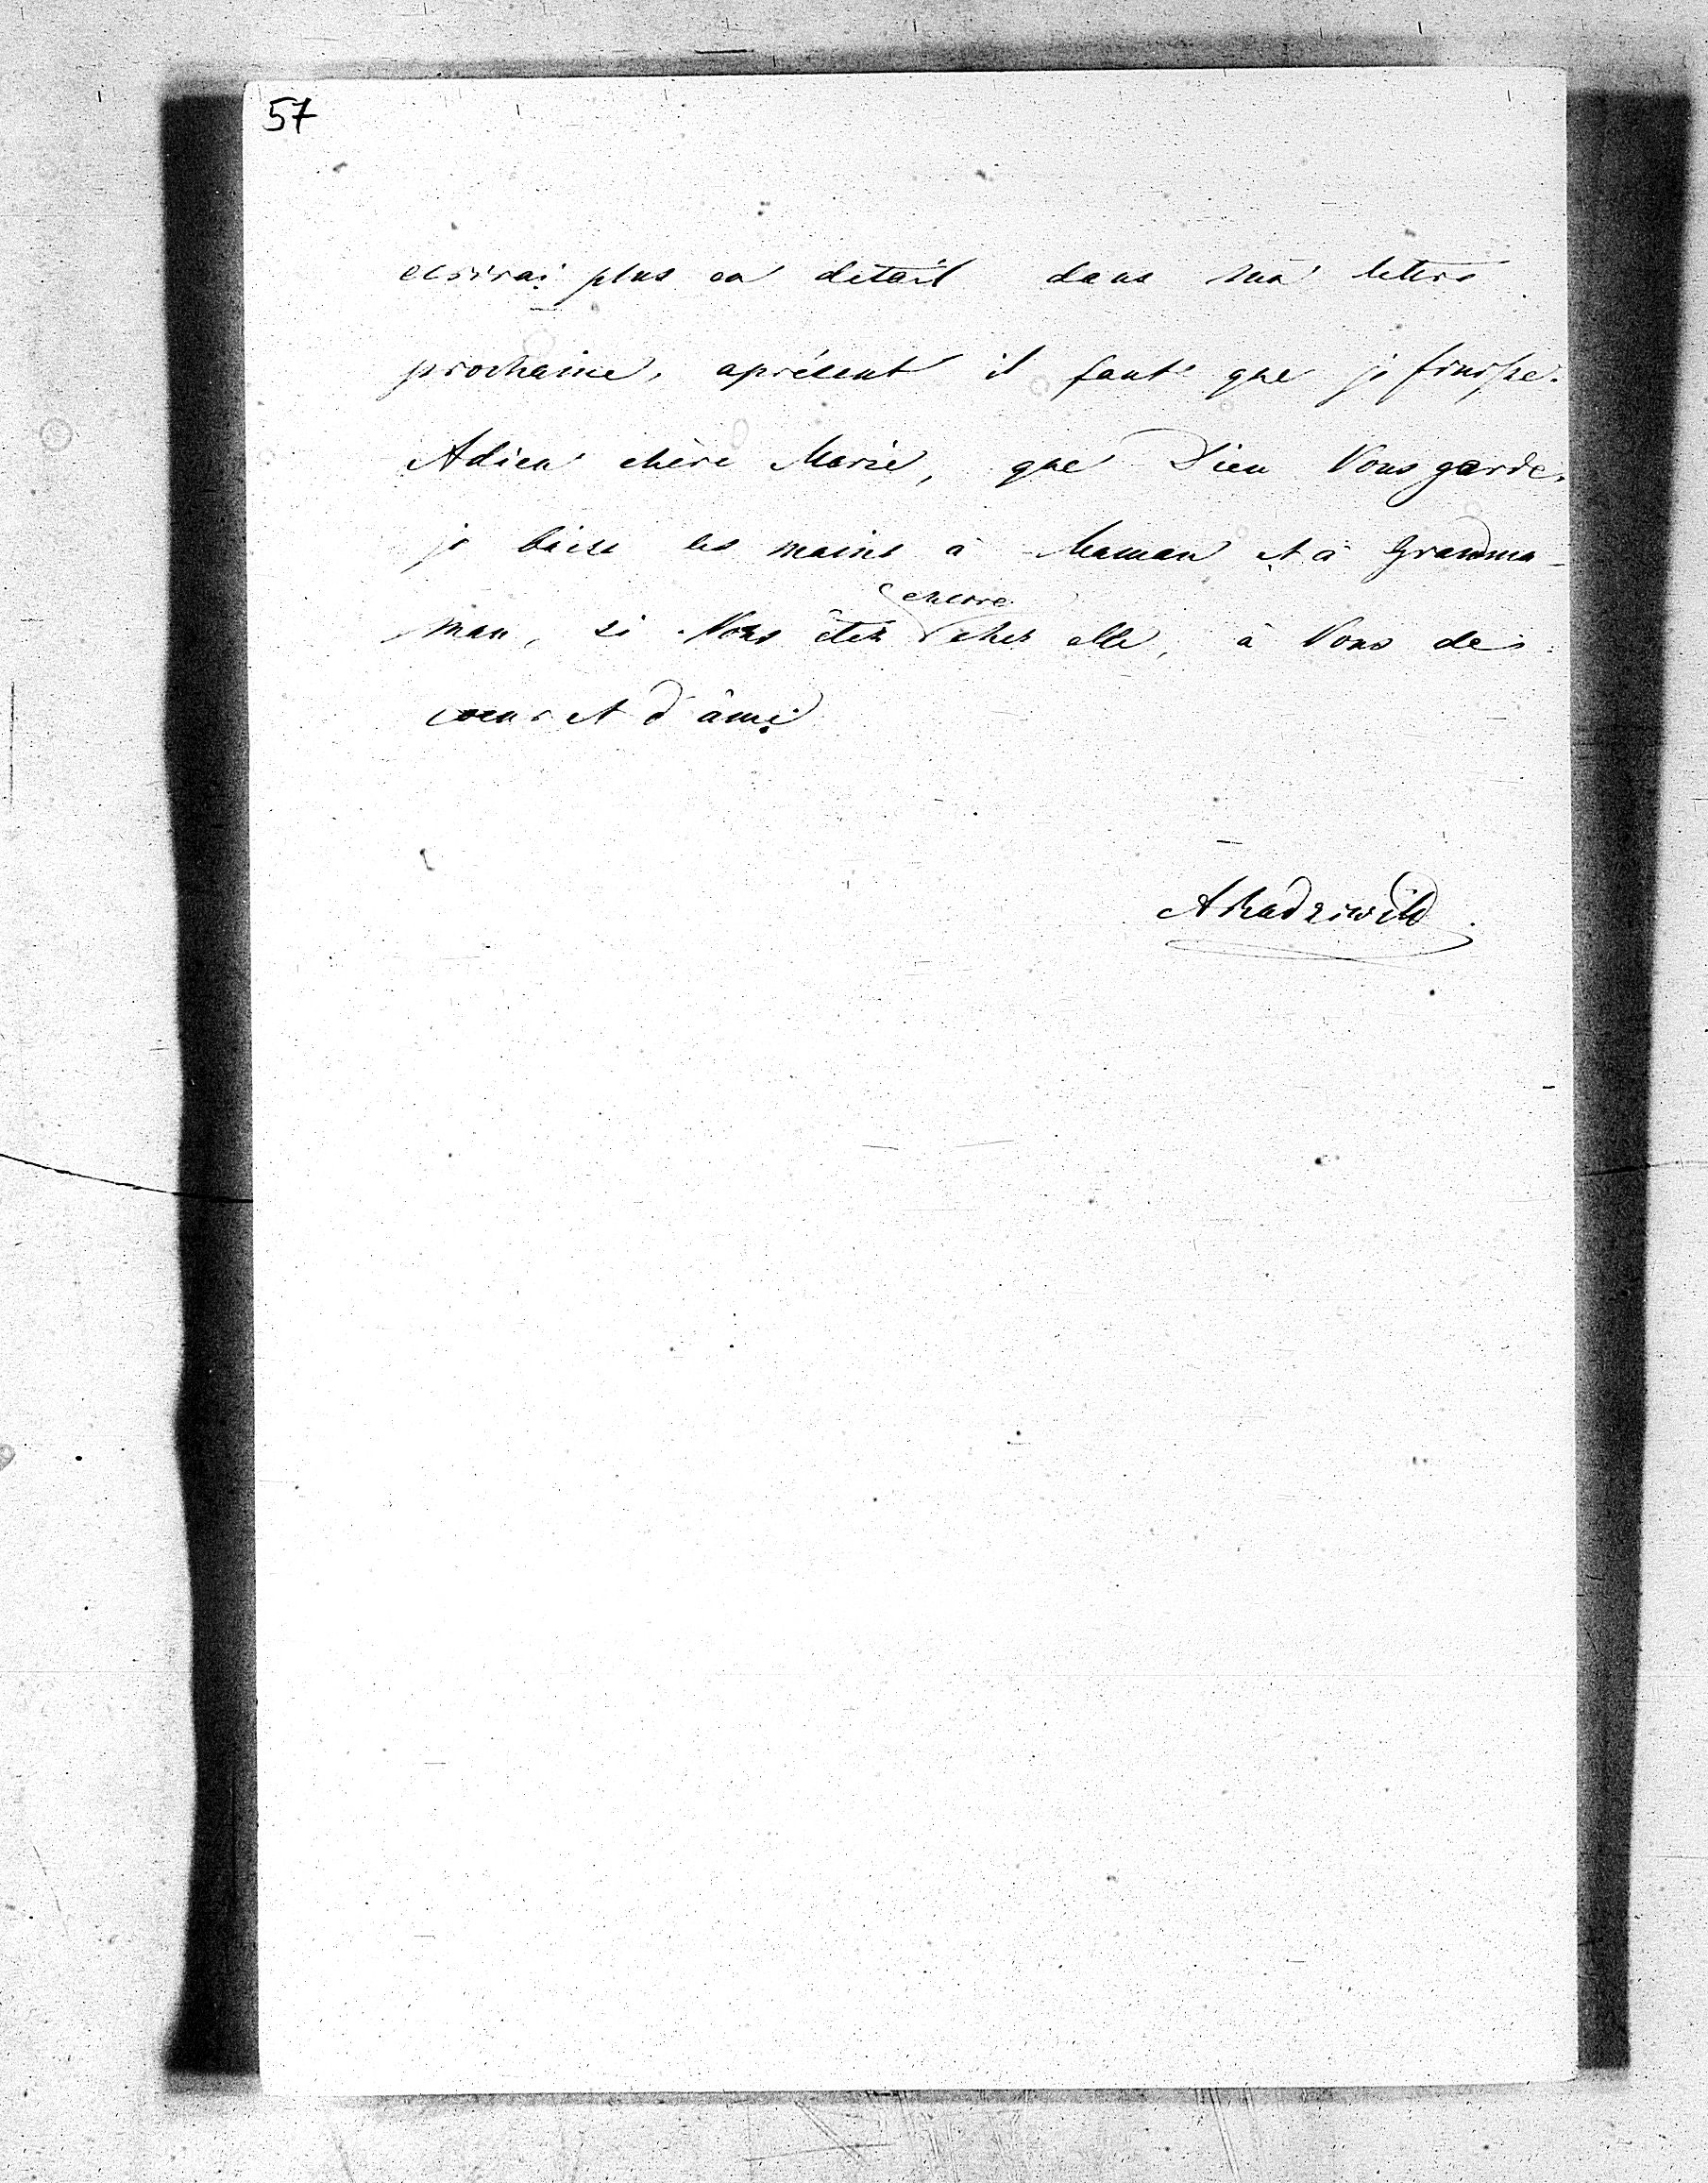 57
ecrirai plus en détail dans ma lettre
prochaine, aprésent il faut que je finisse.
Adieu chère Marie, que Dieu Vous garde,
je baise les mains à Maman et à Grandma-
encore
man, si Vous étez chez elle, à Vous de
coeur et d'âme
ARadziwill